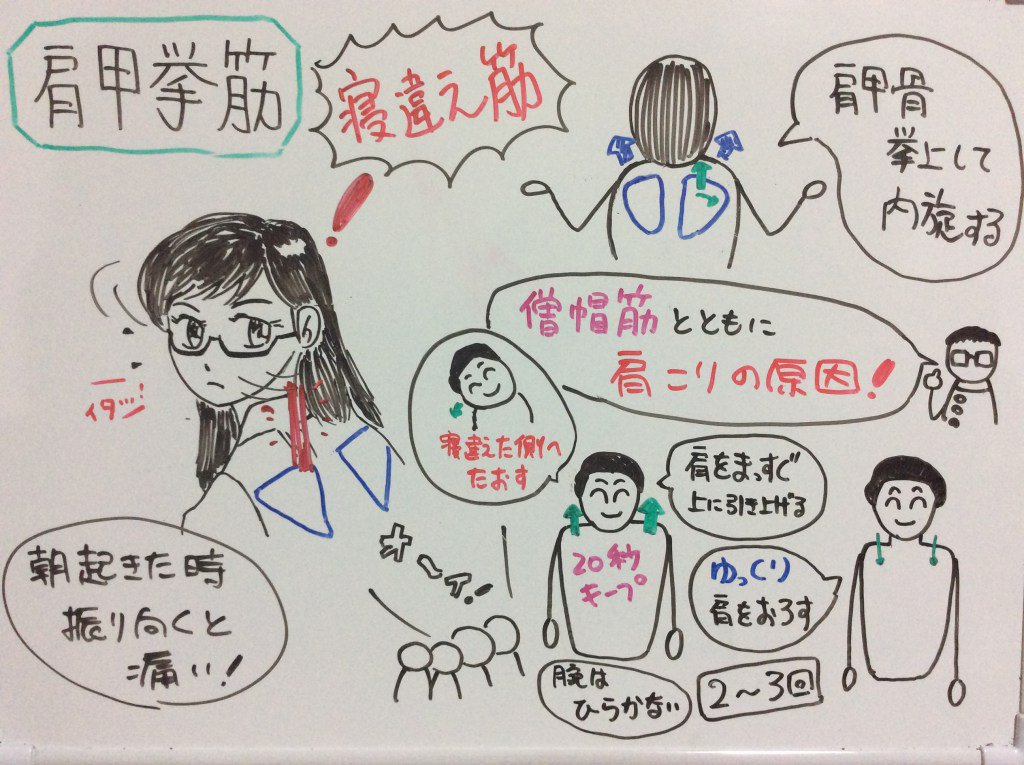 肩甲挙筋
寝違え筋
肩甲骨
挙上して
内旋する
!
イタッ!
僧帽筋とともに
肩こりの原因!
寝違えた側へ
たおす
肩をまっすぐ
上に引き上げる
20秒
キープ
ゆっくり
肩をおろす
腕は
ひらかない
2〜3回
朝起きた時
振り向くと
痛い!
オーイ!